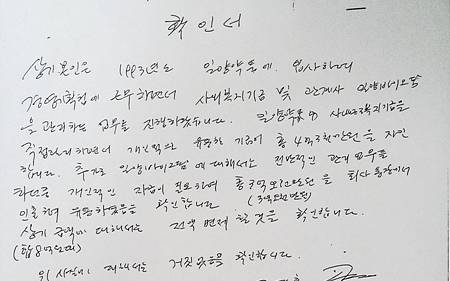 확인서
상기 본인은 1993년도 일양약품에 입사하여
경영기획실에 근무하면서 사내복지기금 및 관계사 일양바이오팜
을 관리하는 업무를 진행하였습니다. 일양약품의 사내근로복지기금을
직접관리하면서 개인적으로 유용한 기금이 총 4억3천만원을 자인
합니다. 추가로 일양바이오팜에 대해서는 전반적인 관리업무를
하면서 개인적인 자금이 필요하여 총 3억오천만원을 회사통장에서
(3억오천만원)
인출하여 유용하였음을 확인합니다
상기 금액에 대해서는 전액 변제 할 것을 확인합니다.
(합8억원)
위 사실에 대해서는 거짓없음을 확인합니다.